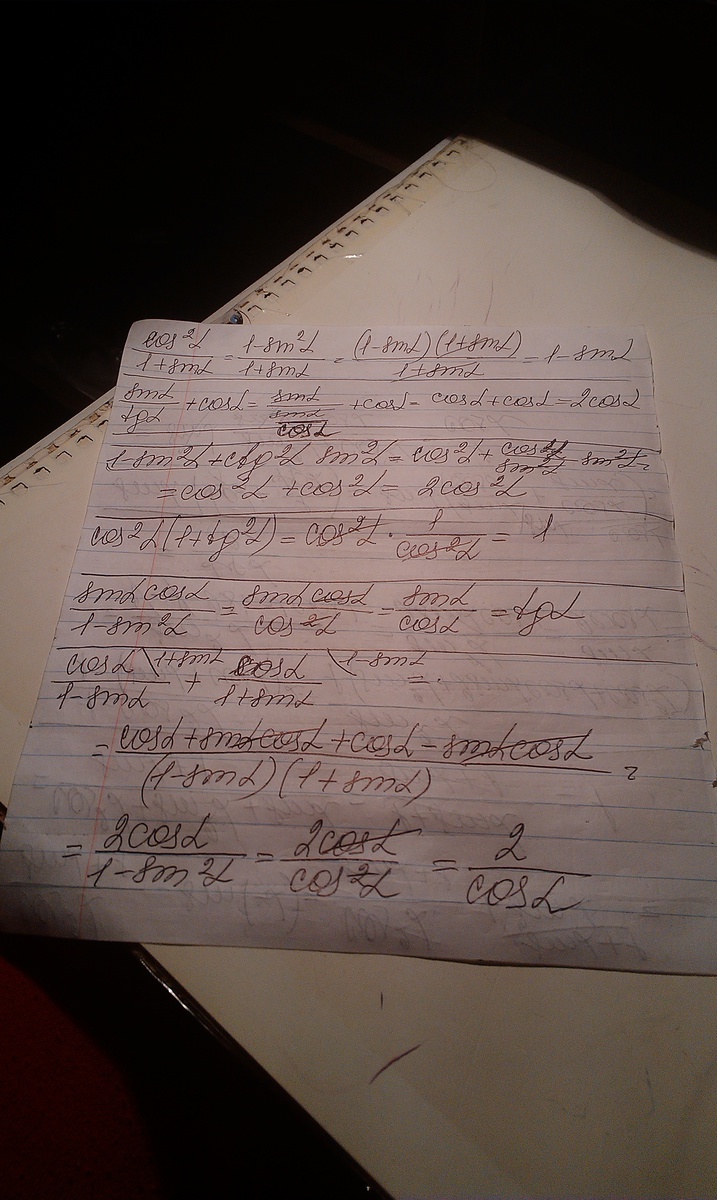 cos²α/(1+sinα) = (1-sin²α)/(1+sinα) = (1-sinα)(1+sinα)/(1+sinα) = 1-sinα
sinα/tgα + cosα = sinα/(sinα/cosα) + cosα = cosα + cosα = 2cosα
1-sin²α + ctg²α sin²α = cos²α + cos²α/sin²α · sin²α =
= cos²α + cos²α = 2cos²α
cos²α(1+tg²α) = cos²α · 1/cos²α = 1
sinα cosα/(1-sin²α) = sinα cosα/cos²α = sinα/cosα = tgα
cosα/(1-sinα) \1+sinα + cosα/(1+sinα) \1-sinα =
= (cosα + sinα cosα + cosα - sinα cosα)/((1-sinα)(1+sinα)) =
= 2cosα/(1-sin²α) = 2cosα/cos²α = 2/cosα